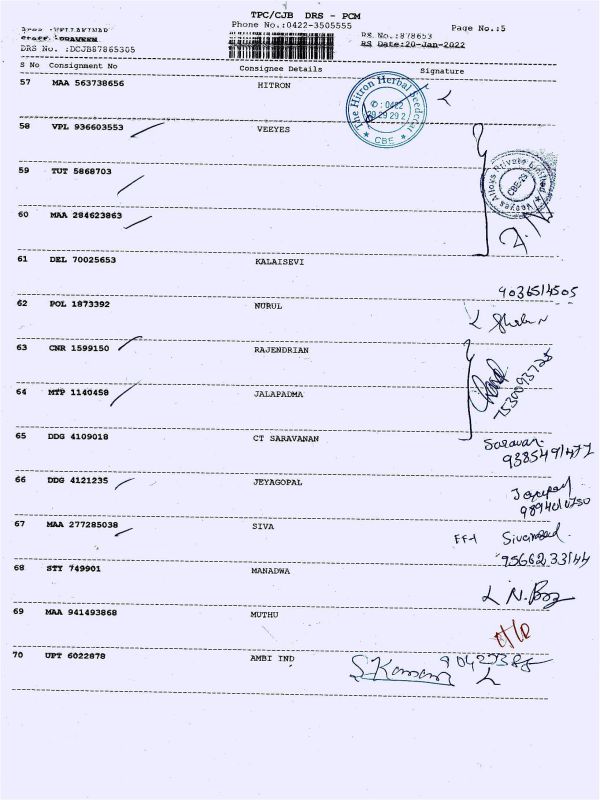 TPC/CJB DRS - PCM
Phone No.:0422-3505555
Page No.:5
Area :VELLAKINAR
Staff :PRAVEEN
RS No.:878653
DRS No. :DCJB87865305
RS Date:20-Jan-2022
S No Consignment No Consignee Details Signature
57 MAA 563738656 HITRON
The Hitron Herbal Seedcetar
✆ : 0422
29 29 29 2
CBE
58 VPL 936603553 VEEYES
59 TUT 5868703
Veeyes Alloys Private Limited
CBE-29
60 MAA 284623863
61 DEL 70025653 KALAISEVI
9036514505
62 POL 1873392 NURUL
63 CNR 1599150 RAJENDRIAN
64 MTP 1140458 JALAPADMA
7530093725
65 DDG 4109018 CT SARAVANAN
Saravan.
9385491477
66 DDG 4121235 JEYAGOPAL
9894010750
67 MAA 277285038 SIVA
FF-1
9566233144
68 STY 749901 MANADWA
69 MAA 941493868 MUTHU
70 UPT 6022878 AMBI IND